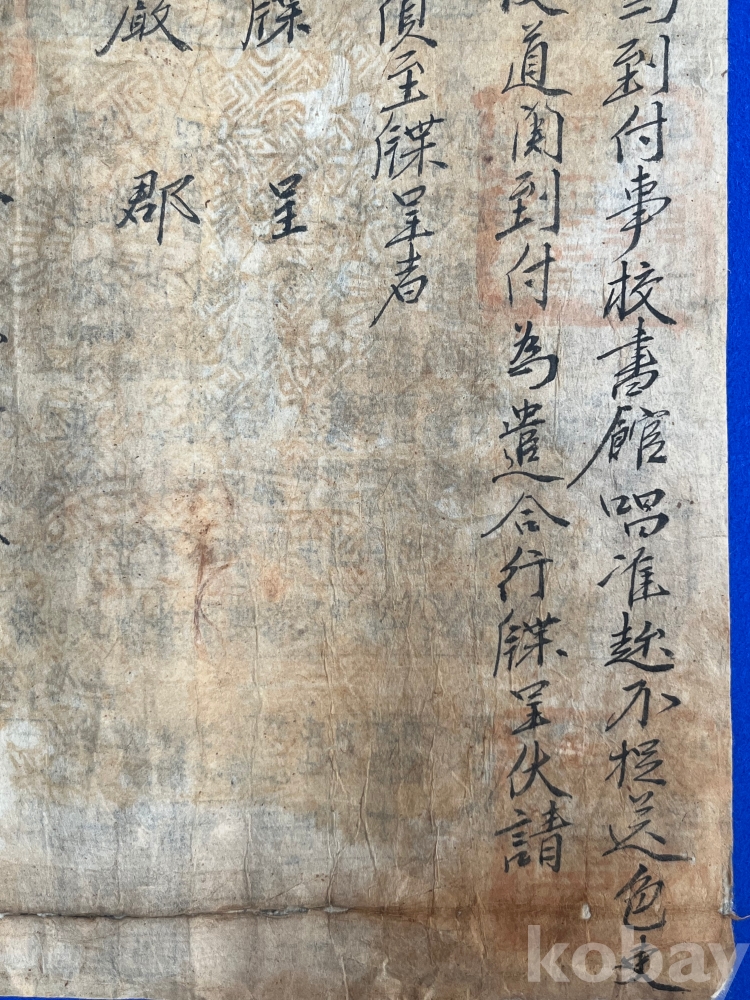 到付事校書館唱准趙不捉送色吏
道関到付為遣合行牒呈伏請
至牒呈者
牒 呈
厳 郡
kobay